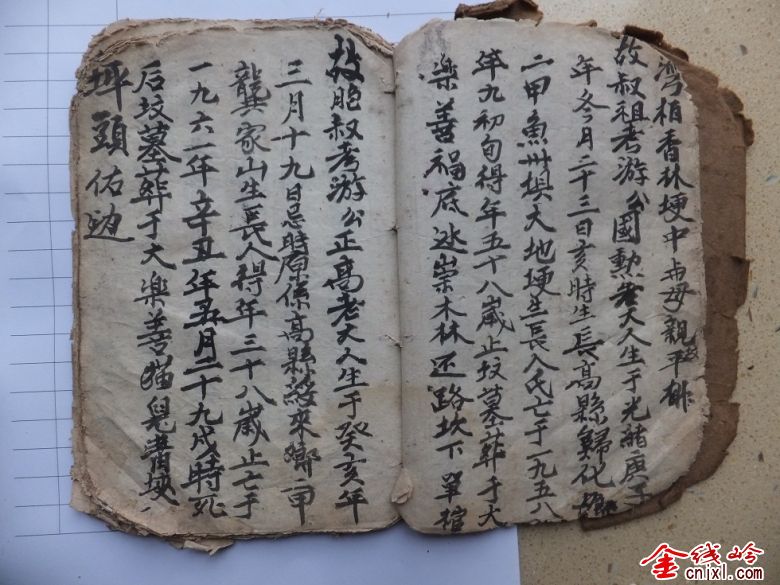 湾柏香林埂中与母親平排
故叔祖考游公國勲老大人生于光緒庚子
年冬月二十三日亥時生長高縣歸化鄉
二甲魚州壩天地埂生長人氏亡于一九五八
年九初旬得年五十八歲止坟墓葬于大
樂善福底逃崇木林还路坎下單棺
故胞叔考游公正高老大人生于癸亥年
三月十九日忌時原係高縣綏來鄉一甲
龔家山生長人得年三十八歲止亡于
一九六一年辛丑年五月二十九戌時死
后坟墓葬于大樂善猫兒埂
坪頭佑边
金线岭
cnixl.com